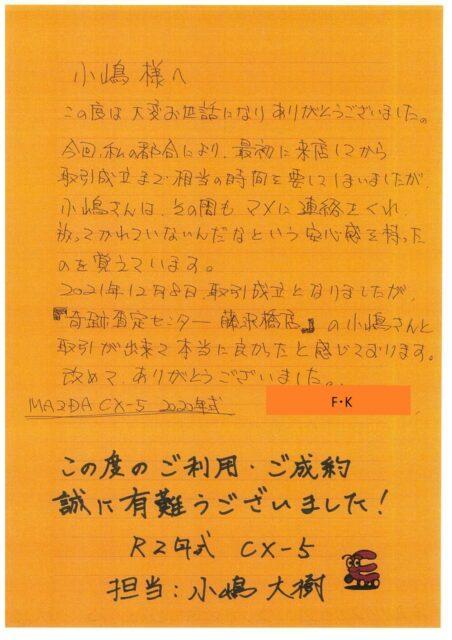 小嶋様へ
この度は大変お世話になりありがとうございました。
今回、私の都合により、最初に来店してから
取引成立まで相当の時間を要してしまいましたが
小嶋さんは、その間もマメに連絡をくれ
放ってかれていないんだなという安心感を持った
のを覚えています。
2021年12月8日、取引成立となりましたが、
『奇跡査定センター 藤沢橋店』の小嶋さんと
取引が出来て本当に良かったと感じております。
改めて、ありがとうございました。
MAZDA CX-5 2020年式
F・K
この度のご利用・ご成約
誠に有難うございました!
R2年式 CX-5
担当:小嶋 大樹